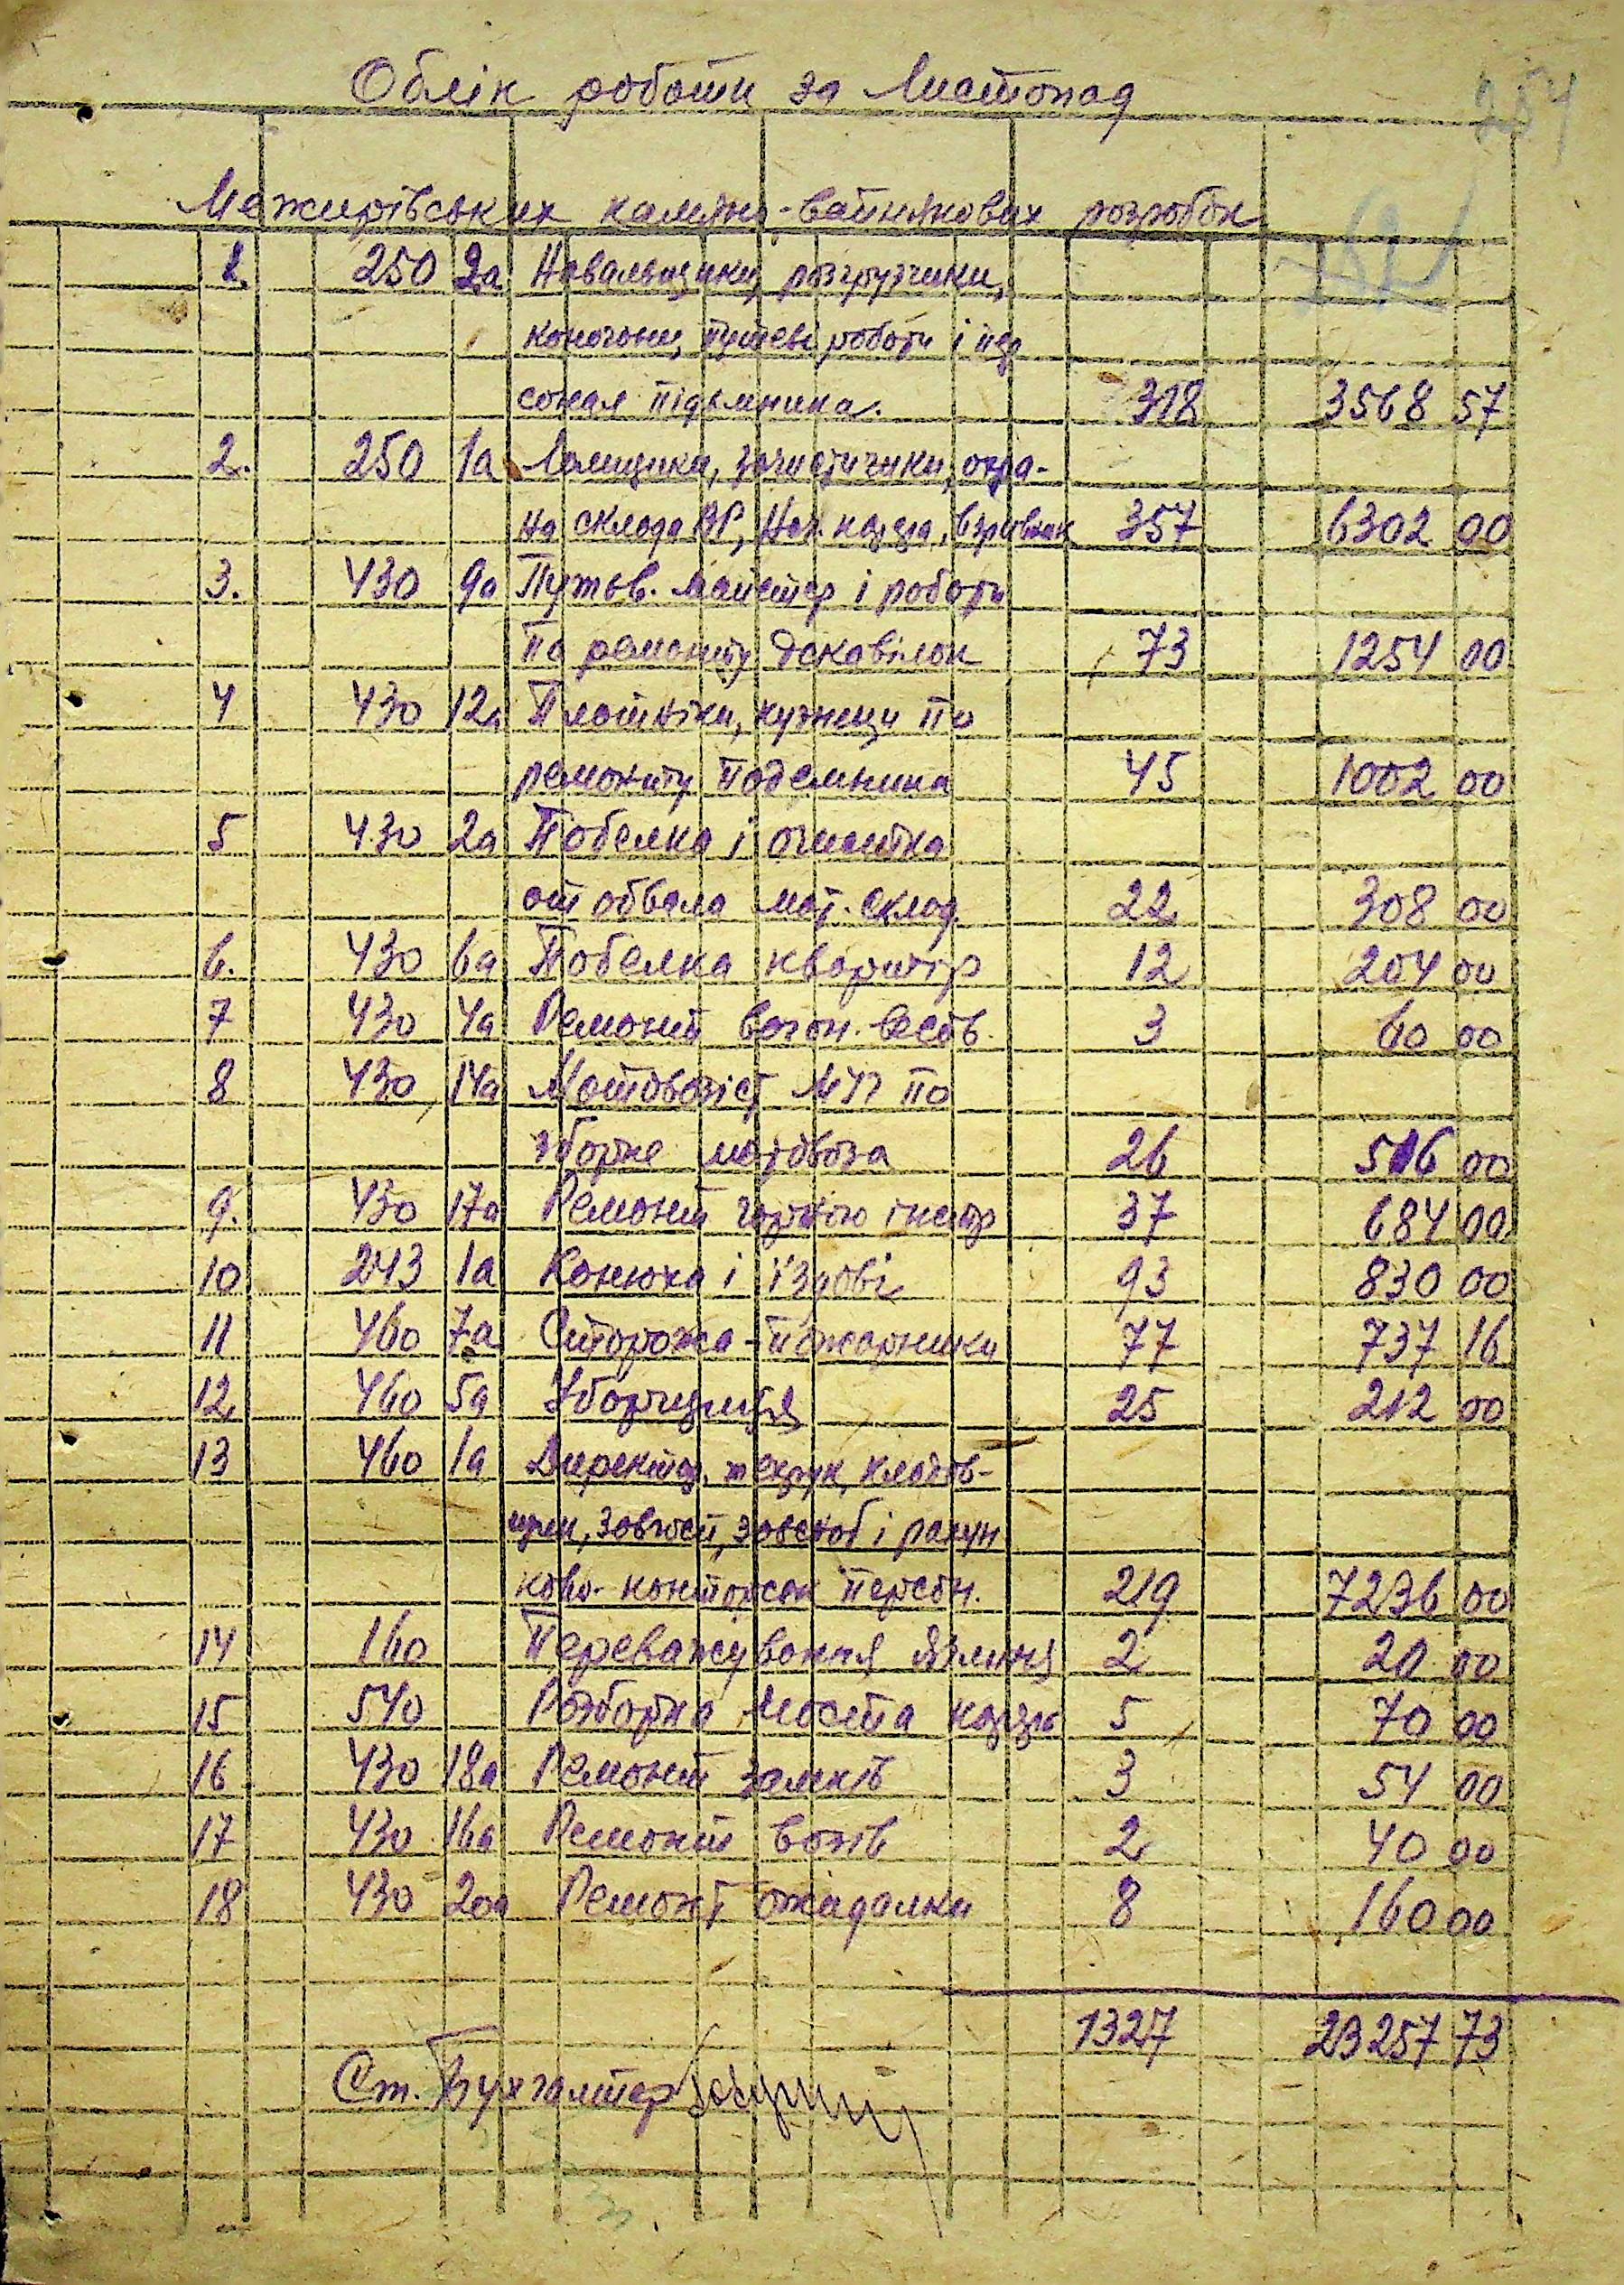 Облік роботи за Листопад
254
Межирівських камяно-вапнякових розробок
1. 250 2а Навальщики, розгрузчики,
коногони, путеві роботи і пер
сонал підьмника. 318 3568 57
2. 250 1а Ломщики, зачистчики, охра-
на склада ВР, Нач. карєра, взривник 357 6302 00
3. 430 9а Путьов. майстер і роботи
по ремонту дековілок 73 1254 00
4 430 12а Плотніки, кузнеци по
ремонту подемника 45 1002 00
5 430 2а Побелка і очистка
от обвала мат. склад 22 308 00
6. 430 6а Побелка квартир 12 204 00
7 430 4а Ремонт вагон. 3 60 00
8 430 14а Мотовозіст МУЗ по
зборке мотовоза 26 516 00
9. 430 17а Ремонт горного інстр 37 684 00
10 243 1а Конюха і їздові 93 830 00
11 460 7а Сторожа-пожарники 77 737 16
12 460 5а Уборщиця 25 212 00
13 460 1а Директор, техрук, кладов-
щик, завгосп, завскоб і рахун
ково-конторськ персон. 219 7236 00
14 160 Переважування 2 20 00
15 540 Розборка моста карєр 5 70 00
16 430 18а Ремонт замків 3 54 00
17 430 16а Ремонт возів 2 40 00
18 430 20а Ремонт ожидалки 8 160 00
1327 23257 73
Ст. Бухгалтер